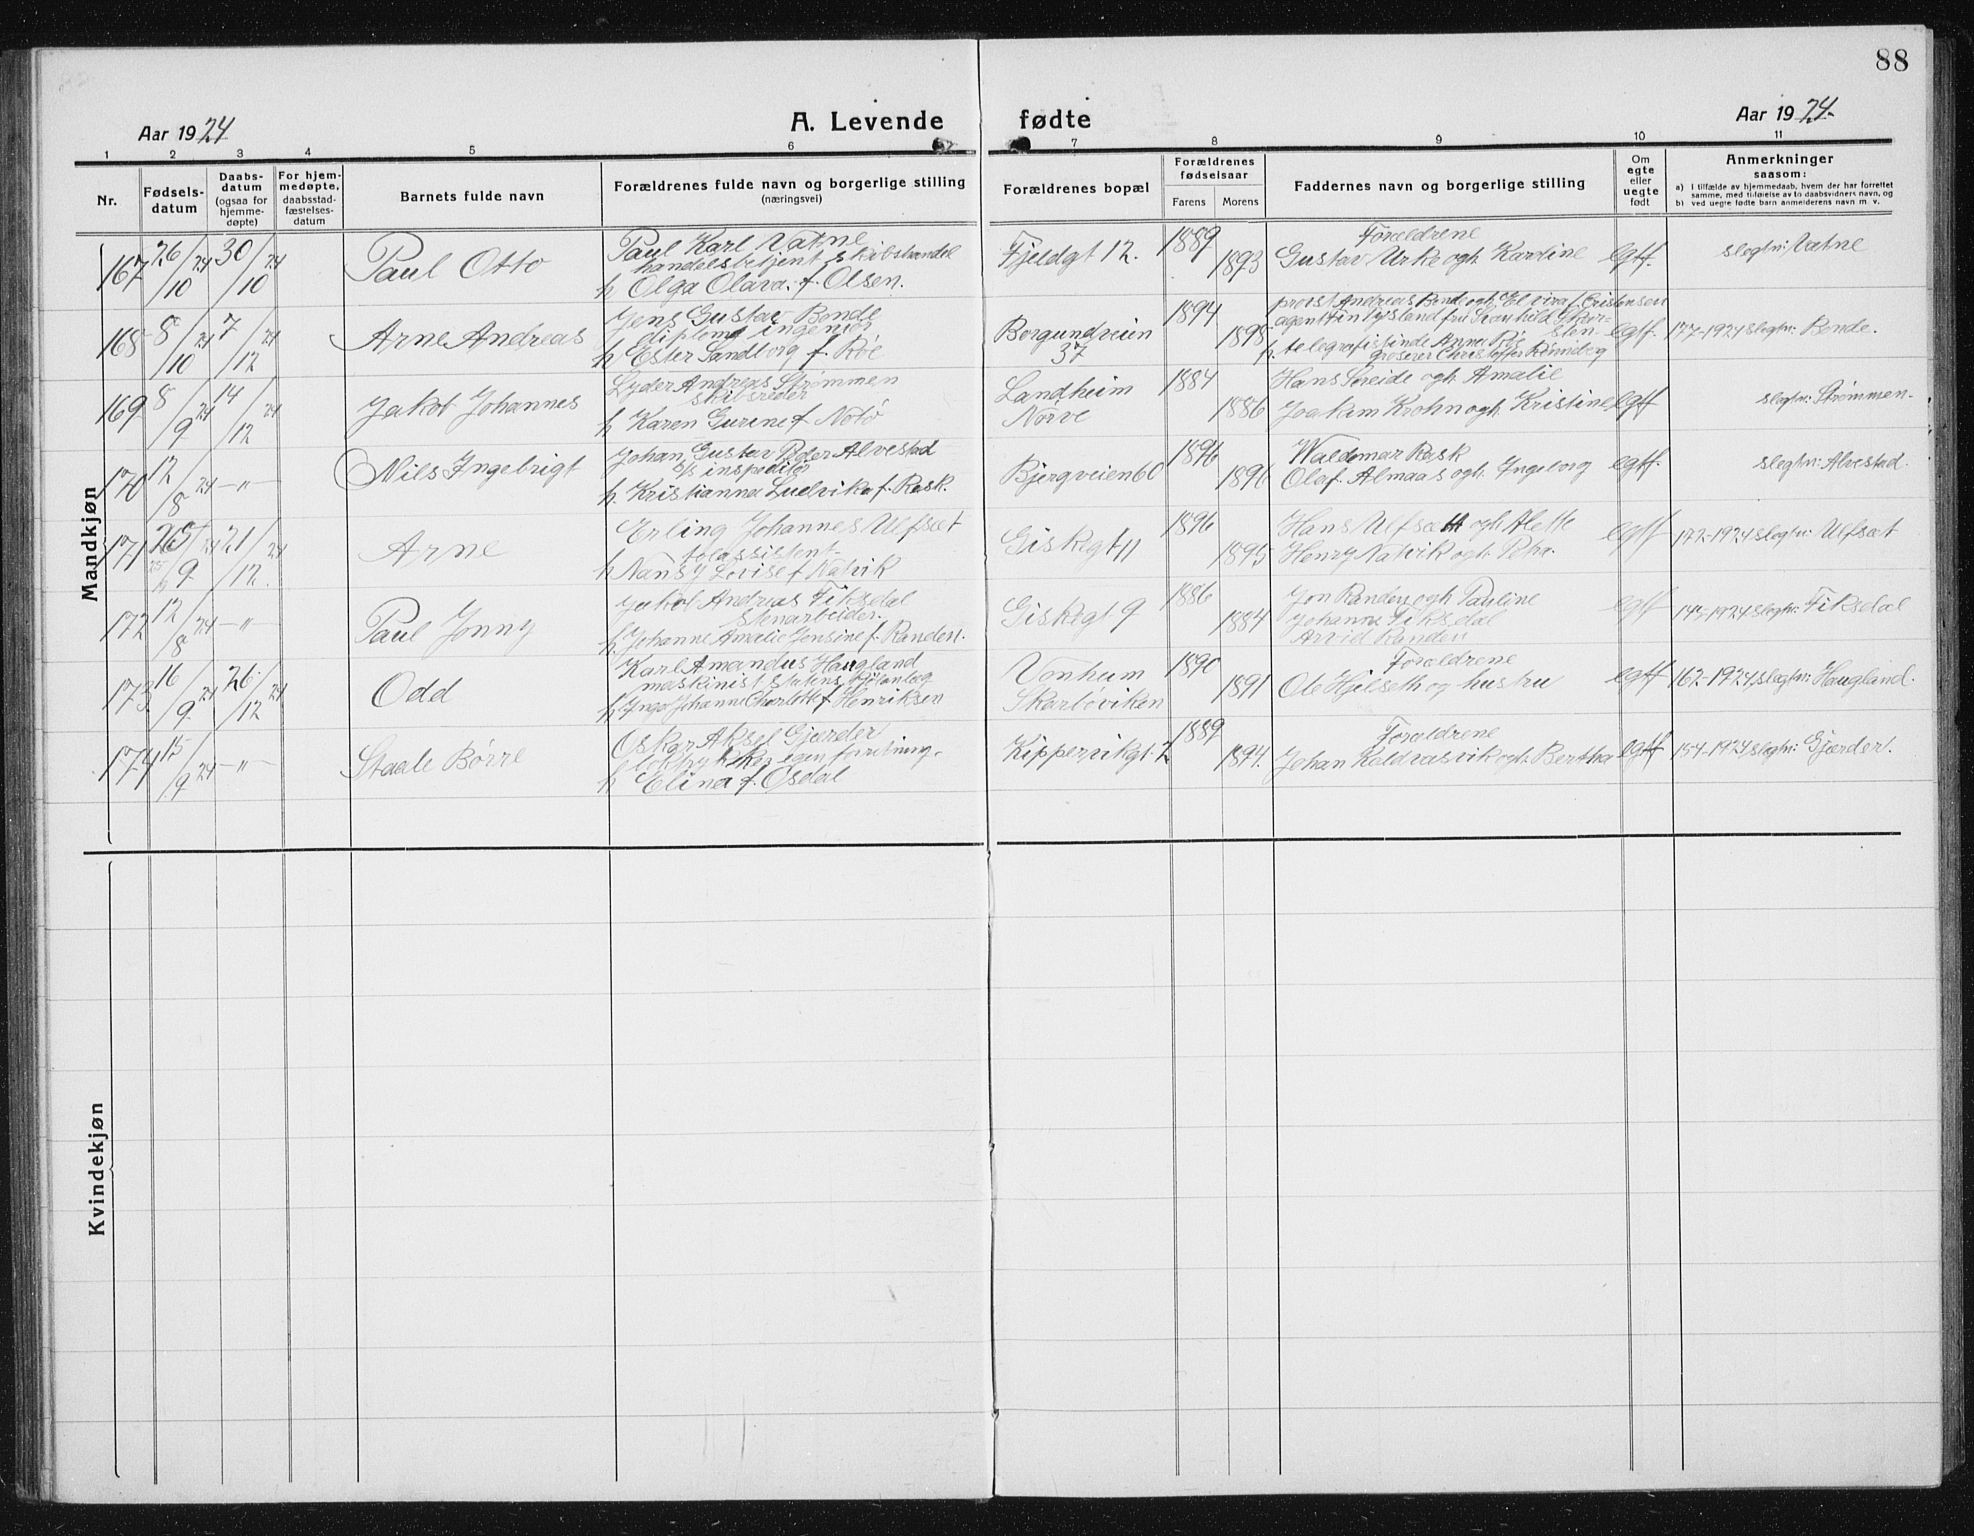 88
Aar 1924
A. Levende fødte
Aar 1924.
1 2 3 4 5 6 7 8 9 10 11
Nr.
Fødsels-
datum
Daabs-
datum
(ogsaa for
hjemme-
døpte)
For hjem-
medøpte,
daabsstad-
fæstelses-
datum
Barnets fulde navn
Forældrenes fulde navn og borgerlige stilling
(næringsvei)
Forældrenes bopæl
Forældrenes
fødselsaar
Farens Morens
Faddernes navn og borgerlige stilling
Om
egte
eller
uegte
født
Anmerkninger
saasom:
a) I tilfælde av hjemmedaab, hvem der har forrettet
samme, med tilføielse av to daabsvidners navn, og
b) ved uegte fødte barn anmelderens navn m. v.
Mandkjøn
167 26/10 24 30/10 24
Paul Otto
Paul Karl Vatne
handelsbetjent skibshandel
h Olga Olava f. Olsen.
Fjeldgt 12.
1889 1893
Forældrene
Gustav Urke og h Kardine
egtf.
slegtn: Vatne
168 8/10 24 7/12 24
Arne Andreas
Jens Gustav Bonde
diplomingeniør
h Ester Sandborg f. Røe
Borgundveien
37
1894 1898
provst Andreas Bonde og h Elvira f. Cristensen
agent Finn Tysland fru
h. telegrafistinde Anna Røe
groserer Christoffer Rønneberg
egtf. 177-1924 slegtn: Bonde.
169 8/9 24 14/12 24
Jakob Johannes
Lyder Andreas Strømmen
skibsreder
h Karen Gurine f Notø
Landheim
Nørve
1884 1886
Hans Søreide og h Amalie
Joakim Krohn og h Kristine
egtf
slegtn: Strømmen.
170 12/8 24 -"-
Nils Ingebrigt
Johan Gustav Peder Alvestad
d/s inspektør
h. Kristianna Ludvika f. Rask.
Bjergveien 60
1896 1896
Waldemar Rask
Olaf Almaas og h Ingeborg
egtf.
slegtn: Alvestad.
171 25/9 24 21/12 24
Arne
Erling Johannes Ulfsæt
tolassistent
h Nansy Lovise f Natvik
Giskegt 11
1896 1895
Hans Ulfsæth og h Alette
Henry Natvik og h
egtf 172-1924 slegtn: Ulfsæt
172 12/8 24 -"-
Paul Jonny
Jakob Andreas Fiksdal
stenarbeider.
h. Johanne Amalie Jensine f. Randen.
Giskegt 9
1886 1884
Jon Randen og h Pauline
Johanna Fiksdal
Arvid Randen
egtf slegtn: Fiksdal
173. 16/9 24 26/12 24
Odd
Karl Amandus Haugland
maskinist statens kjøleanlæg
h Inga Johanne Charlotte f Henriksen
Vonheim
Skarbøviken
1890 1891
Forældrene
Ole Hjelseth og hustru
egtf 162-1924 slegtn: Haugland.
174 15/9 24 -"-
Staale Børre
Oskar Aksel Gjærder
egen forretning.
h Elina f. Osdal
Kippervikgt. 2
1889 1894.
Forældrene
Johan Koldrasvik og h Bertha
egtf 154-1924 slegtn: Gjærder.
Kvindekjøn